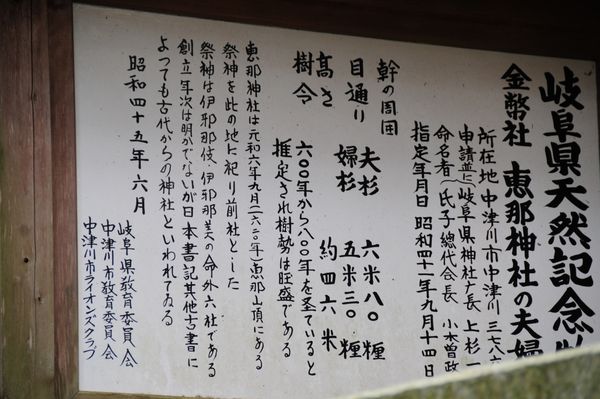 岐阜県天然記念
金幣社 恵那神社の夫婦
所在地 中津川市中津川 三七八
申請並に(岐阜県神社庁長 上杉一
命名者(氏子總代会長 小木曽政
指定年月日 昭和四十一年九月十四日
幹の周囲
目通り 夫杉 六米八〇糎
婦杉 五米三〇糎
高さ 約四六米
樹令 六〇〇年から八〇〇年を圣ていると
推定され樹勢は旺盛である
恵那神社は元和六年九月(一六二〇年)恵那山頂にある
祭神を此の地に祀り前社とした
祭神は伊邪那伎、伊邪那美の命外六社である
創立年次は明かでないが日本書記其他古書に
よつても古代からの神社といわれてゐる
昭和四十五年六月
岐阜県教育委員会
中津川市教育委員会
中津川市ライオンズクラブ